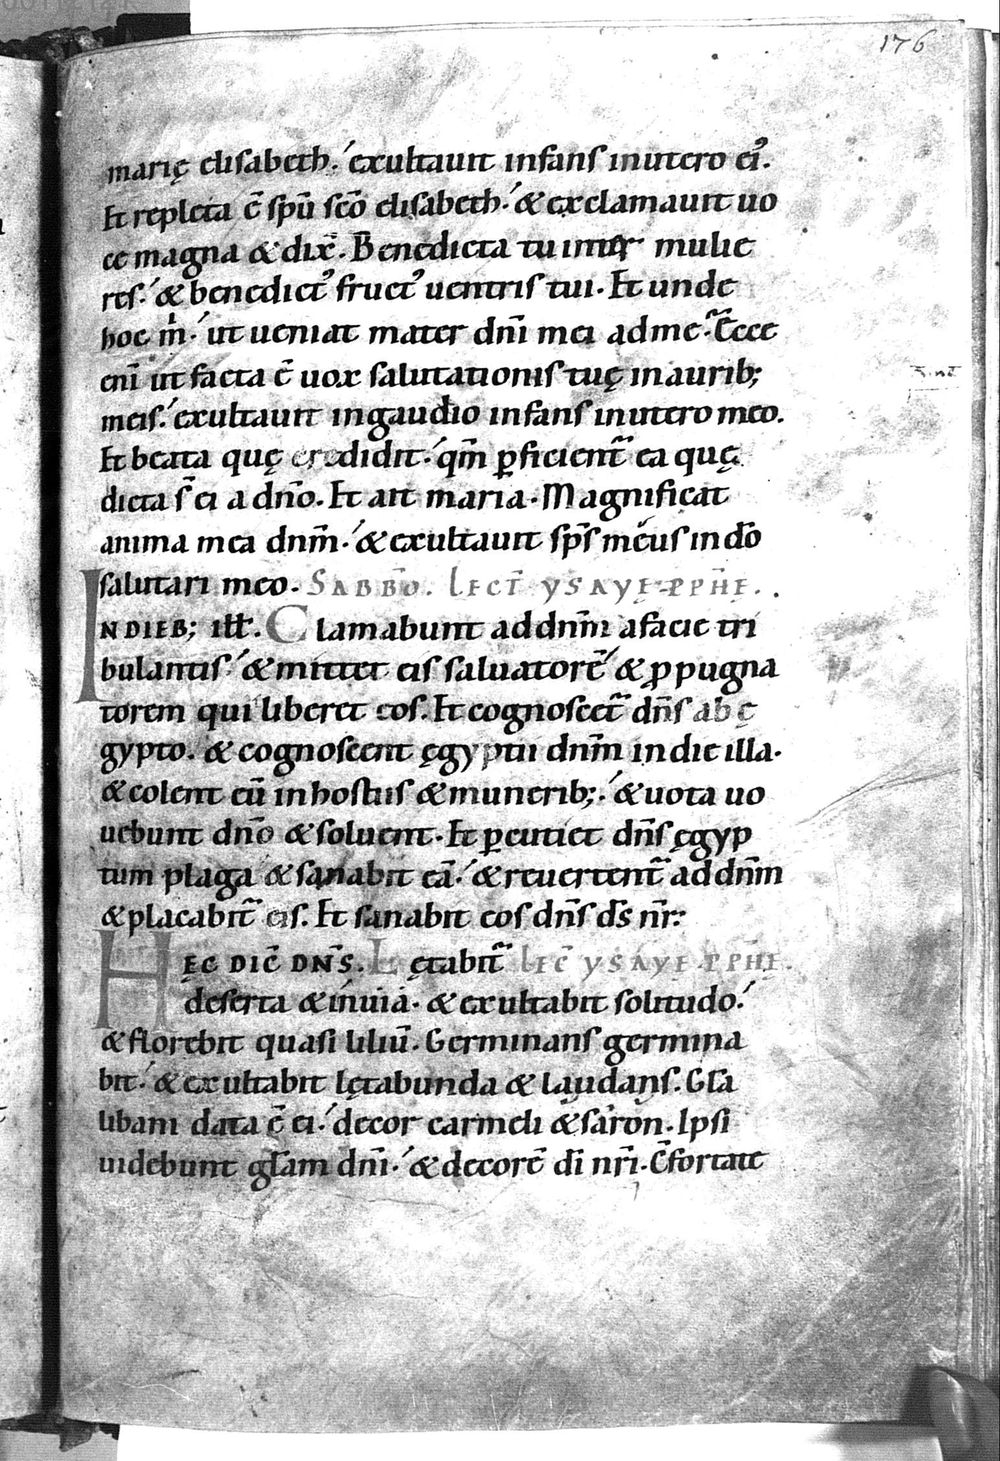 176
marię elisabeth. exultauit infans inutero ei᾽.
Et repleta ē spū scō elisabeth. & exclamauit uo
ce magna & dix̄. Benedicta tu inter mulie
res. & benedict᾽ fruct᾽ uentris tui. Et unde
hoc m̍. ut ueniat mater dn̄i mei ad me. Ecce
eni̅ ut facta ē uox salutationis tuę inaurib;
meis. exultauit ingaudio infans inutero meo.
Et beata quę credidit. qm̄ ꝑficient᷑ ea quę
dicta s̄ ei a dn̄o. Et ait maria. Magnificat
anima mea dnm̄. & exultauit sps̄ meus in dō
salutari meo. SABBO. LECT̄ YSAYE PPHE.
INDIEB; ill̄. Clamabunt ad dnm̄ afacie tri
bulantis. & mittet eis saluatorē & ꝓpugna
torem qui liberet eos. Et cognoscet᷑ dn̄s ab ę
gypto. & cognoscent ęgyptii dnm̄ in die illa.
& colent eū in hostiis & munerib;. & uota uo
uebunt dn̄o & soluent. Et ꝑcutiet dn̄s ęgyp
tum plaga & sanabit eā. & reuertent᷑ ad dnm̄
& placabit᷑ eis. Et sanabit eos dn̄s ds̄ nr̄:
HĘC DIC̄ DN̄S. Lętabit᷑ LEC̄ YSAYE PPHE.
deserta & inuia. & exultabit solitudo.
& florebit quasi liliū. Germinans germina
bit. & exultabit lętabunda & laudans. Gl̄a
libani data ē ei. decor carmeli & saron. Ipsi
uidebunt gl̄am dn̄i. & decorē dī nr̄i. C̄fortate